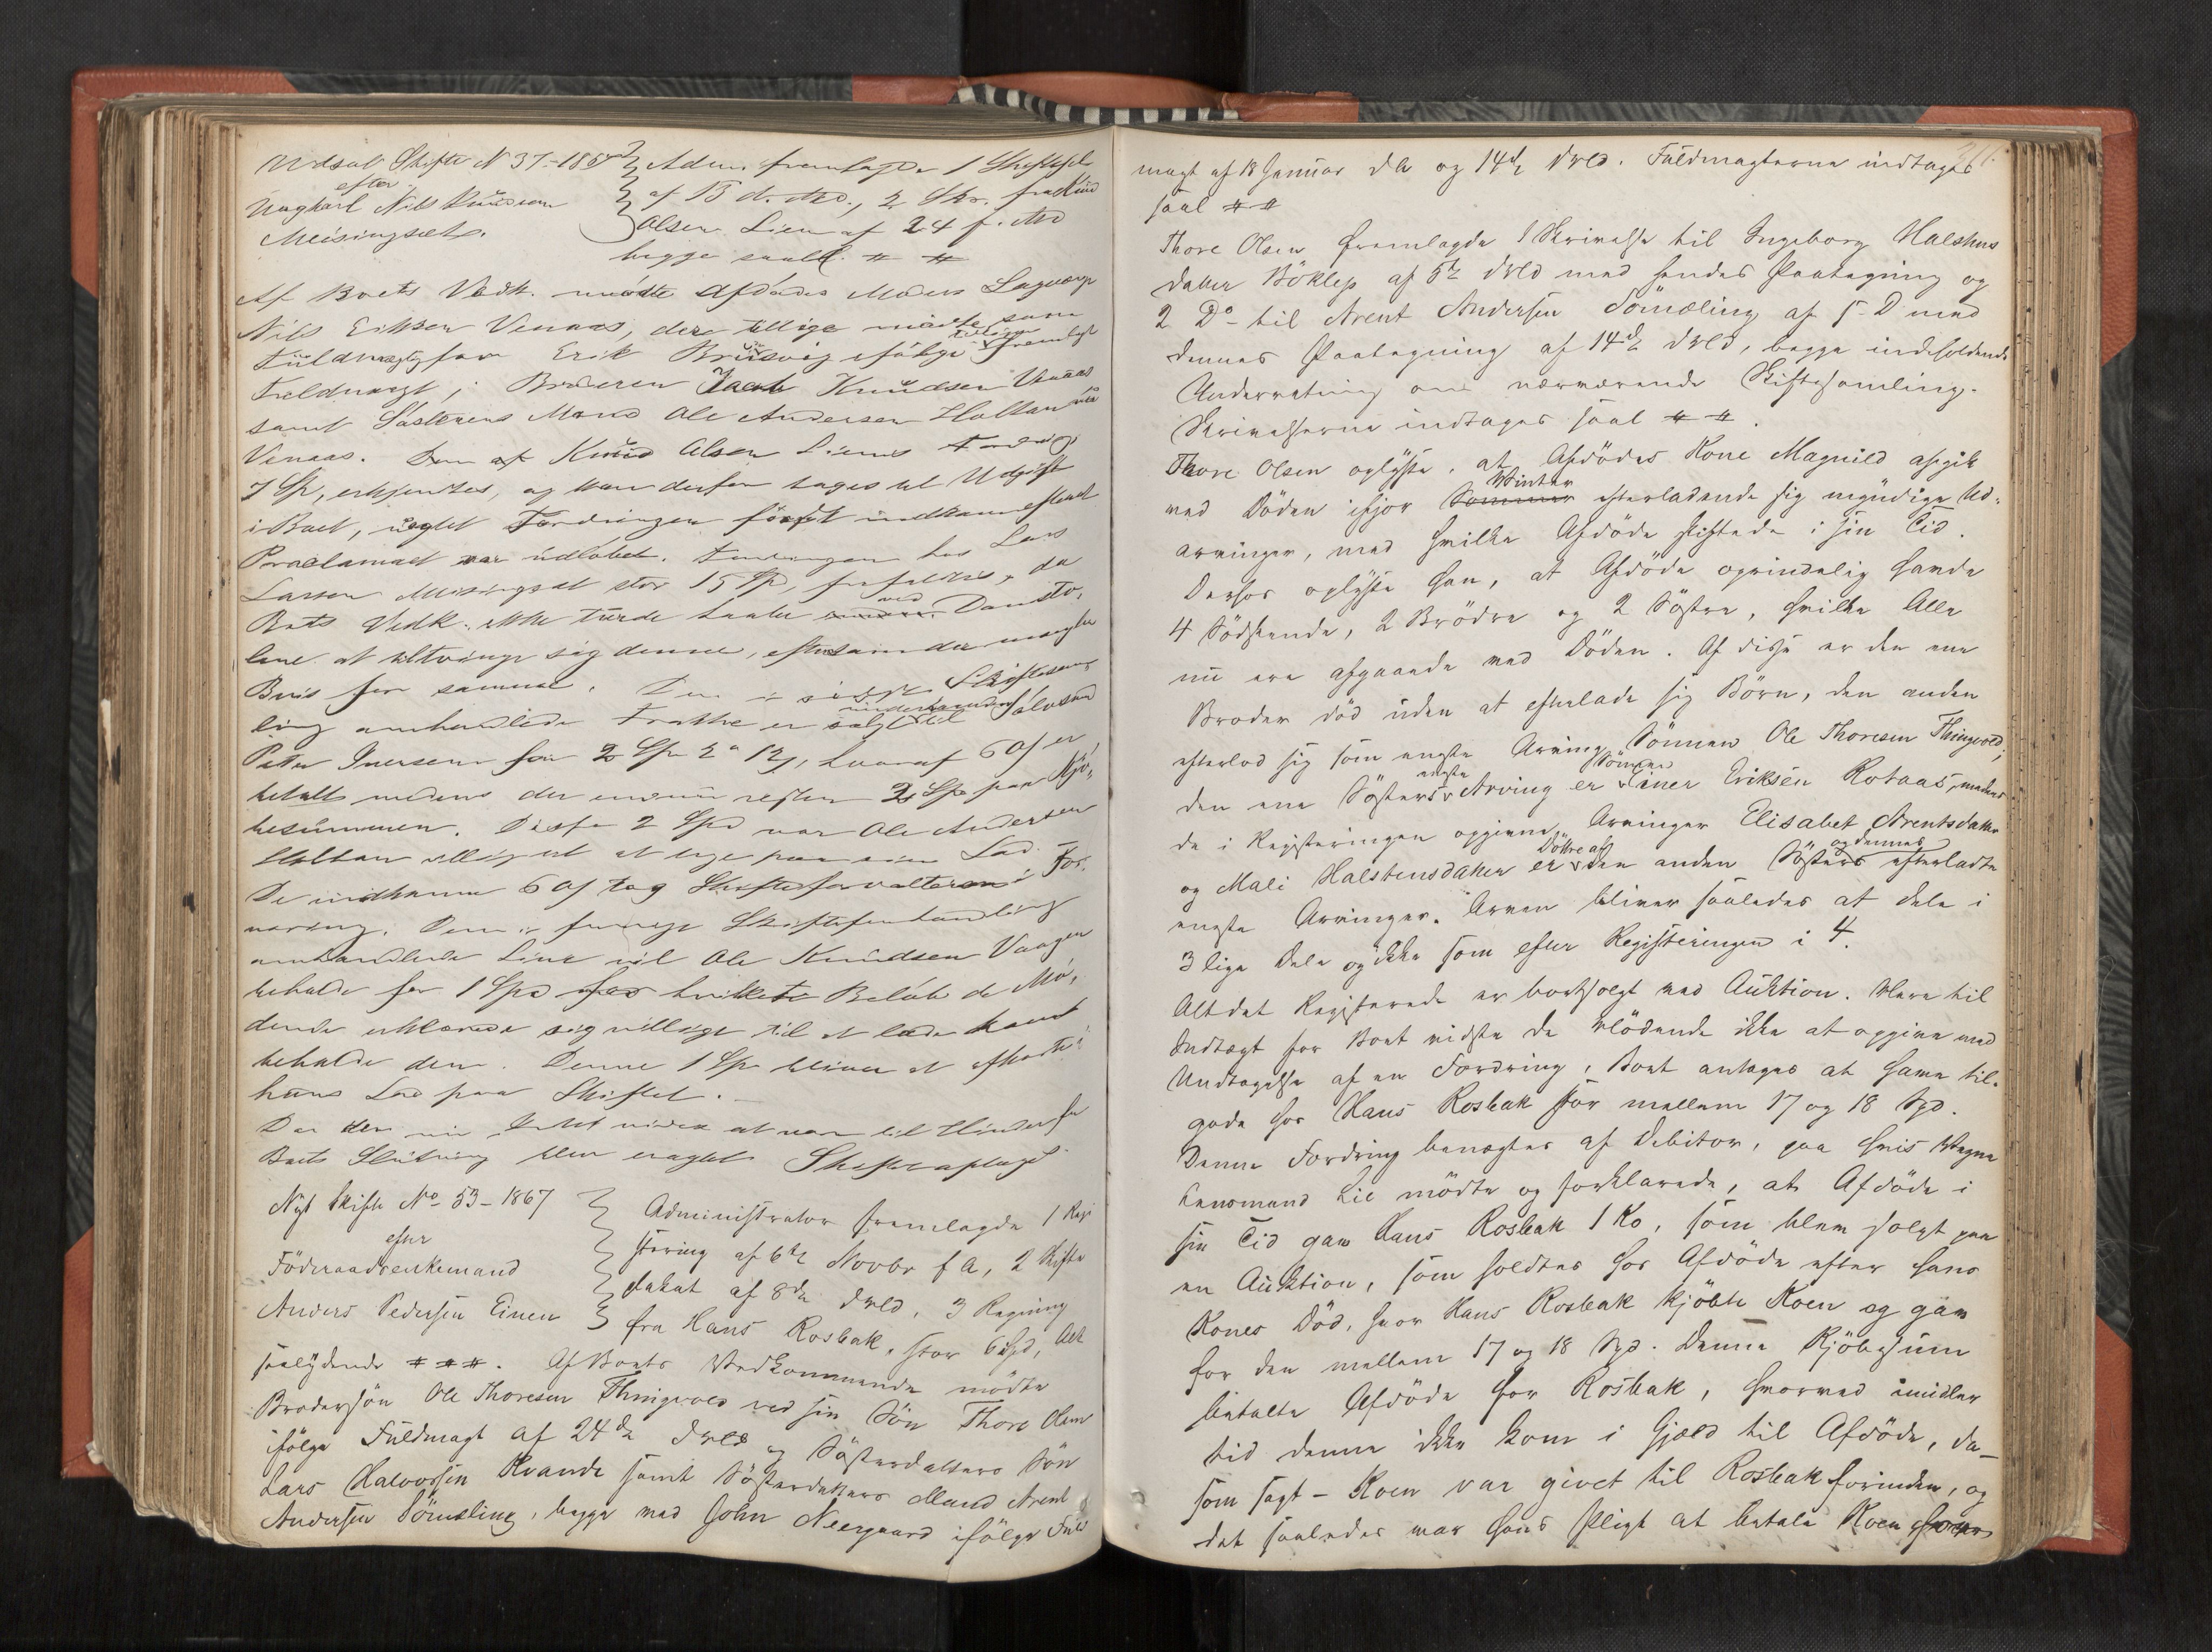 Udsat Skifte N 37-1867
efter
Ungkarl Nils Knudsen
Meisingset.
Adm. fremlagde 1 Skifteft
af 13 d. Md., 2 Skr. fra Knud
Olsen Lien af 24 f. Md
begge saal. # #
Af Boets Vedk. mødte Afdødes Moders Laugværge
Nils Eriksen Venaas, der tillige mødte som
Fuldmægtig for Erik Brusvig ifølge tidligere fremlagt
Fuldmagt, Broderen Jacob Knudsen Venaas
samt Søsterens Mand Ole Andersen Holtan
Venaas. Den af Knud Olsen Liens Fordring
7 Sp, erkjendtes, og kan derfor tages til Udgift
i Boet, uagtet Fordringen først indkom efterat
Proclamaet var udløbet. Fordringen hos Lars
Larsen Meisingset stor 15 Sp, frafaldes, da
Boets Vedk. ikke turde haabe ved Domsto-
lene at tiltvinge sig denne, eftersom der mangler
Bevis for samme. Den i sidste Skiftesam
ling omhandlede Frakke er solgt underhaanden til
Peter Iversen for 2 Sp 2 12, hvoraf 60 er
betalt medens der endnu rester 2 Sp paa Kjø-
besummen. Disse 2 Spd var Ole Andersen
Holtan villig til at tage paa sin Lod.
De indkomne 60 tog Skifteforvalteren i For-
varing. Den i forrige Skifteforhandling
omhandlede vil Ole Knudsen Vaagen
beholde for 1 Spd hvilket Beløb de Mø-
dende erklærede sig villige til at lade ham
beholde den. Denne 1 Sp bliver at afkorte i
hans Lod paa Skiftet. —
Da der nu Intet videre at var til Hinder for
Boets Slutning blev eragtet Skiftet optaget
Nyt Skifte No 53-1867
efter
Føderaadsenkemand
Anders Pedersen Einen
Administrator fremlagde 1 Regi
strering af 6te Novbr f A, 2 Skifte
plakat af 8de s.M., 3 Regning
fra Hans Rosbak, stor 6 Spd, Alt
saalydende # # #. Af Boets Vedkommende mødte
Brodersøn Ole Thoresen Thingvold ved sin Søn Thore Olsen
ifølge Fuldmagt af 24de og Søsterdatters Søn
Lars Halvorsen Kvande samt Søsterdatters Mand Arent
Andersen Sømeling, begge ved John Neergaard ifølge Fuld
magt af 18 Januar da og 14de Fuldmagterne indtages
saal # #
Thore Olsen fremlagde 1 Skrivelse til Ingeborg Halstens
datter Böklep af 5te med hendes Paategning og
2 Do til Arent Andersen Sömæling af s D med
dennes Paategning af 14de, begge indeholdende
Underretning om nærværende Skiftesamling.
Skrivelserne indtages saal # #.
Thore Olsen oplyste, at Afdödes Kone Magnild afgik
ved Döden ifjor Sommer Winter efterladende sig myndige Ud-
arvinger, med hvilke Afdöde skiftede i sin Tid.
Derhos oplyste han, at Afdöde oprindelig havde
4 Södskende, 2 Brödre og 2 Söstre, hvilke Alle
nu ere afgaaede ved Döden. Af disse er den ene
Broder död uden at efterlade sig Börn, den anden
efterlod sig som eneste Arving Sönnen Ole Thoresen Thingvold;
den ene Sösters eneste Arving er Sönnen Einer Eriksen Rotaas, medens
de i Registeringen opgivne Arvinger Elisabet Arentsdatter
og Mali Halstensdatter er Dötre af den anden Söster og dennes efterladte
eneste Arvinger. Arven bliver saaledes at dele i
3 lige Dele og ikke som efter Registeringen i 4.
Alt det Registerede er bortsolgt ved Auktion. Mere til
Indtægt for Boet vidste de Mödende ikke at opgive med
Undtagelse af en Fordring, Boet antages at have til-
gode hos Hans Rosbak stor mellem 17 og 18 Spd.
Denne Fordring benægtes af Debitor, paa hvis Vegne
Lensmand Lie mödte og forklarede, at Afdöde i
sin Tid gav Hans Rosbak 1 Ko, som blev solgt paa
en Auktion, som holdtes hos Afdöde efter hans
Kones Död, hvor Hans Rosbak kjöbte Koen og gav
for den mellem 17 og 18 Spd. Denne Kjöbesum
betalte Afdöde for Rosbak, hvorved imidler
tid denne ikke kom i Gjæld til Afdöde, da —
som sagt — Koen var givet til Rosbak forinden, og
det saaledes var hans Pligt at betale Koen